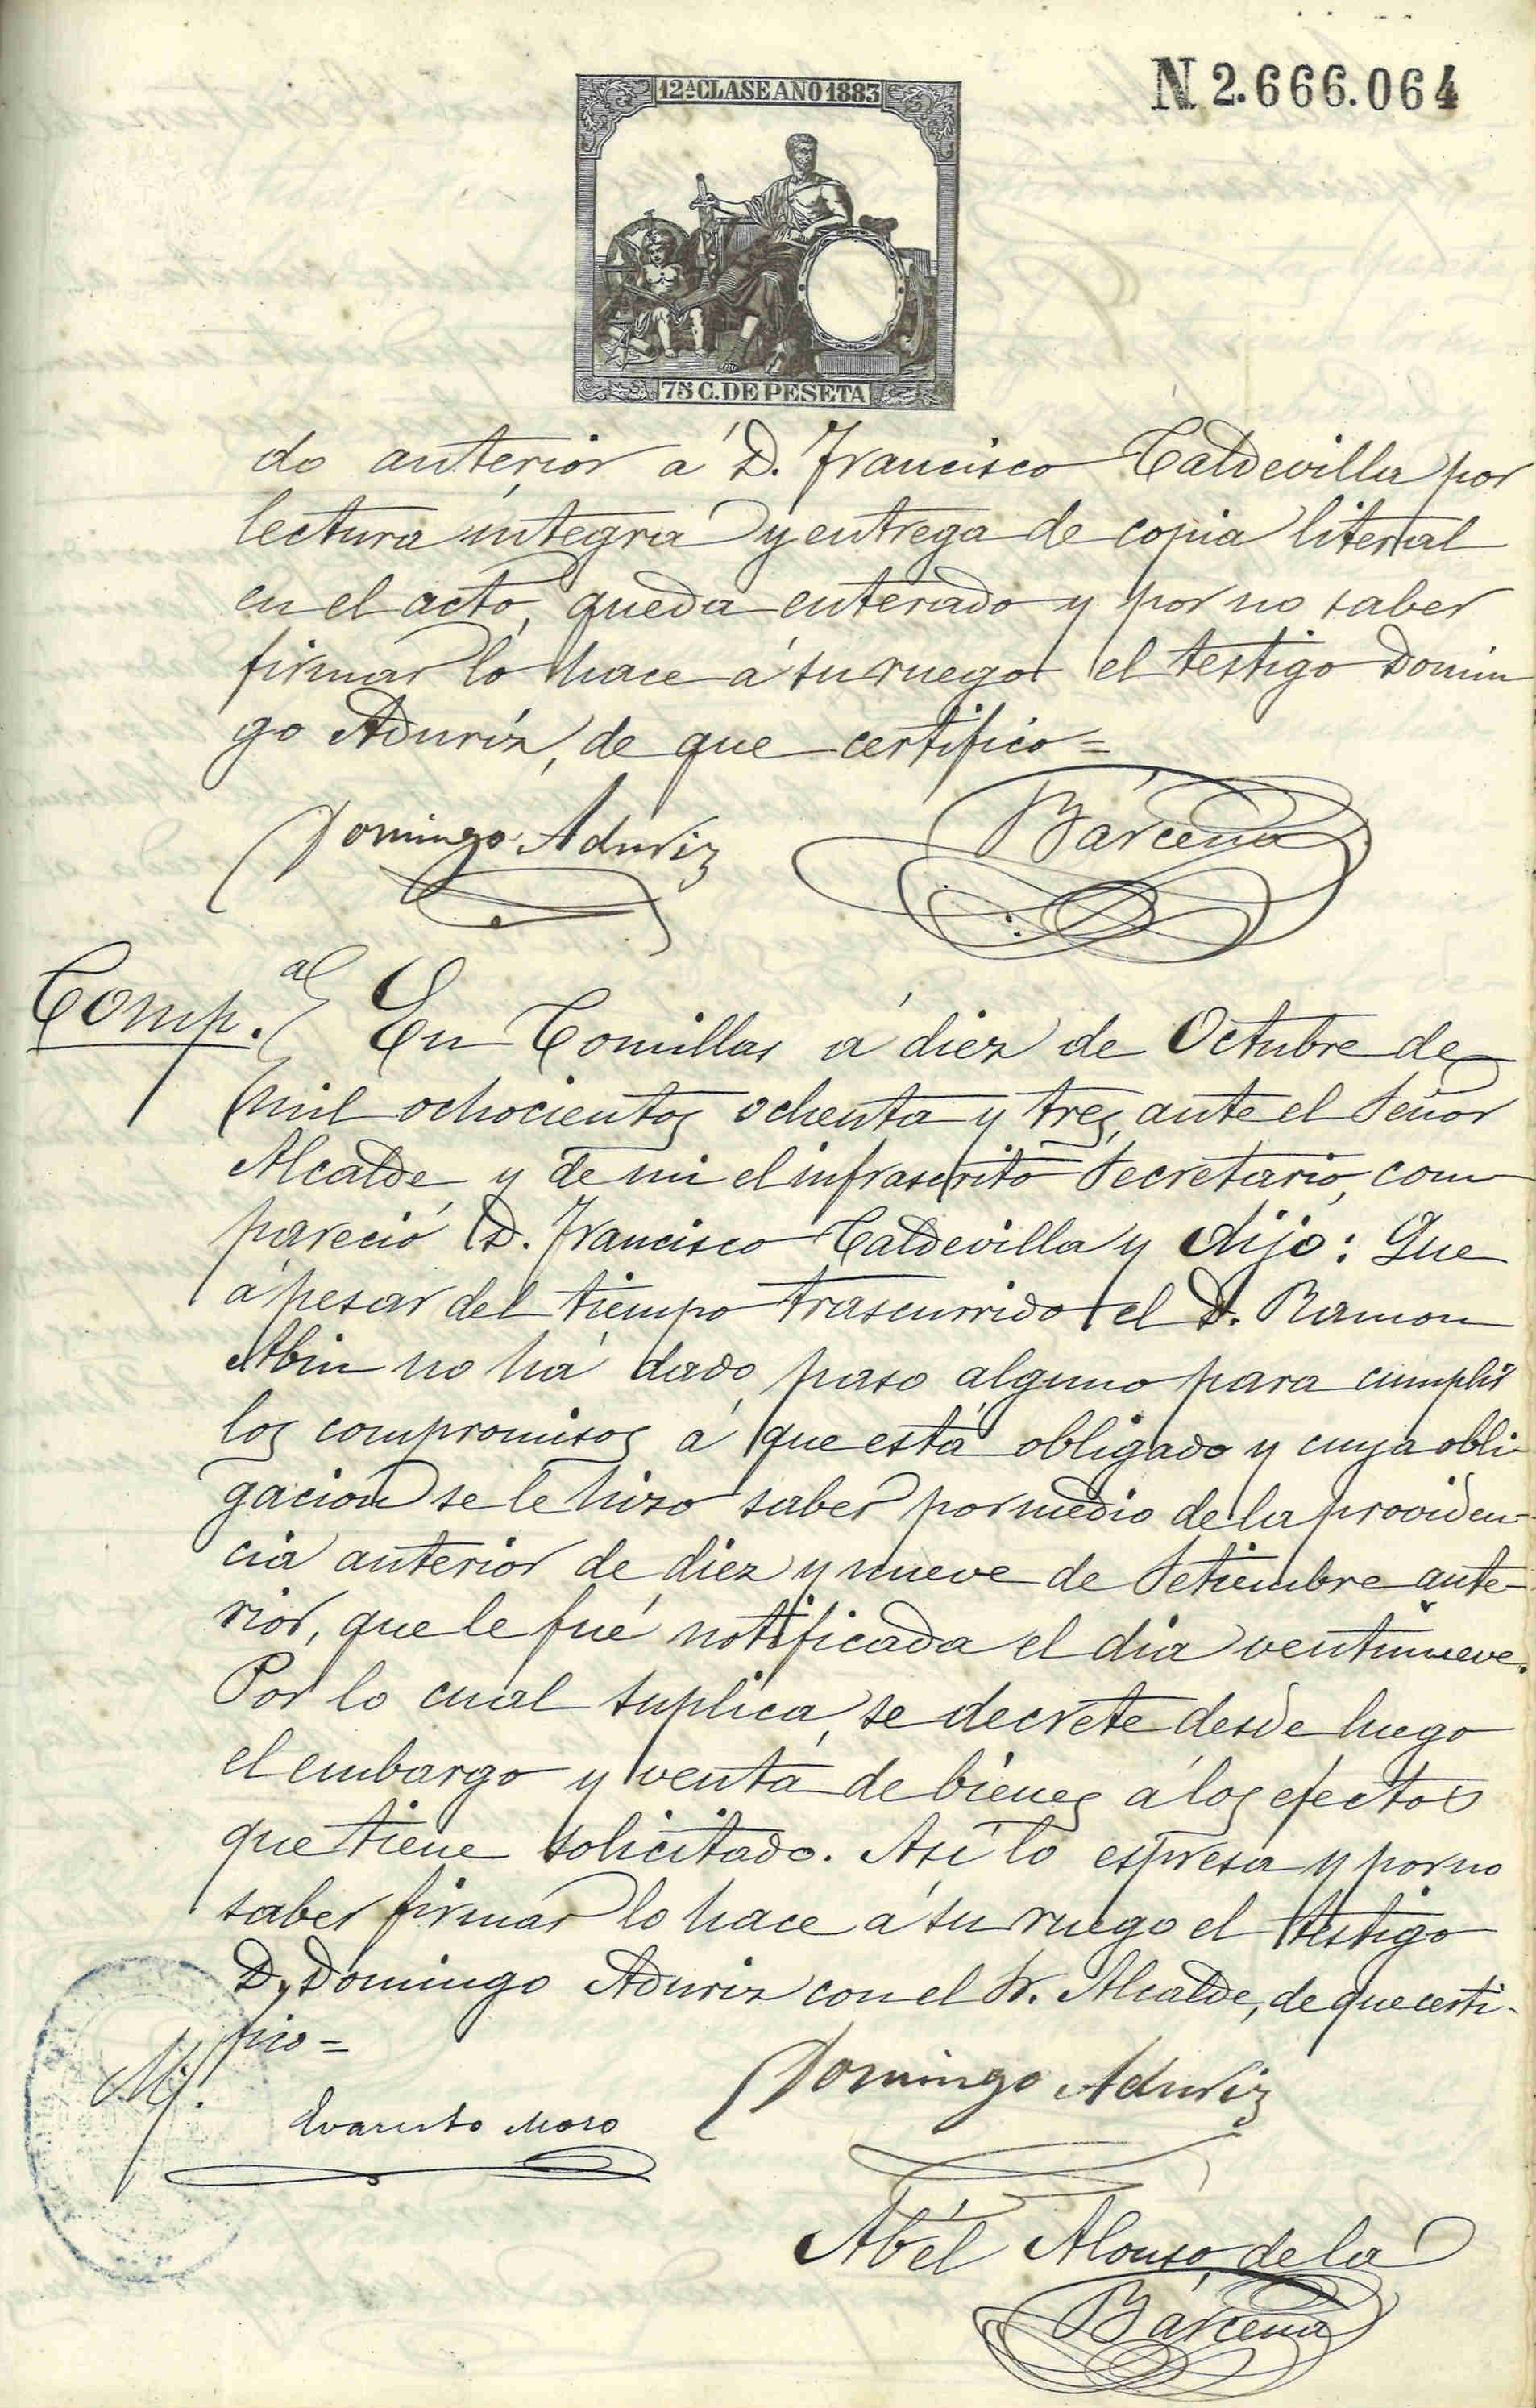 N. 2.666.064
12ª CLASE AÑO 1883
75 C. DE PESETA
do anterior á D. Francisco Caldevilla por
lectura integra y entrega de copia literal
en el acto, queda enterado y por no saber
firmar lo hace á su ruego el testigo Domin
go Aduriz, de que certifico=
Domingo Aduriz
Bárcena
Comp.al
En Comillas á diez de Octubre de
mil ochocientos ochenta y tres, ante el Señor
Alcalde y de mi el infrascrito Secretario, com
pareció D. Francisco Caldevilla y dijo: Que
á pesar del tiempo trascurrido el D. Ramon
Abin no há dado paso alguno para cumplir
los compromisos á que está obligado y cuya obli-
gacion se le hizo saber por medio de la providen-
cia anterior de diez y nueve de Setiembre ante-
rior, que le fué notificada el dia ventinueve.
Por lo cual suplica, se decrete desde luego
el embargo y venta de bienes á los efectos
que tiene solicitado. Así lo espresa y por no
saber firmar lo hace á su ruego el testigo
D. Domingo Aduriz con el Sr. Alcalde, de que certi-
fico=
Domingo Aduriz
Evaristo Moro
Abél Alonso de la
Bárcena